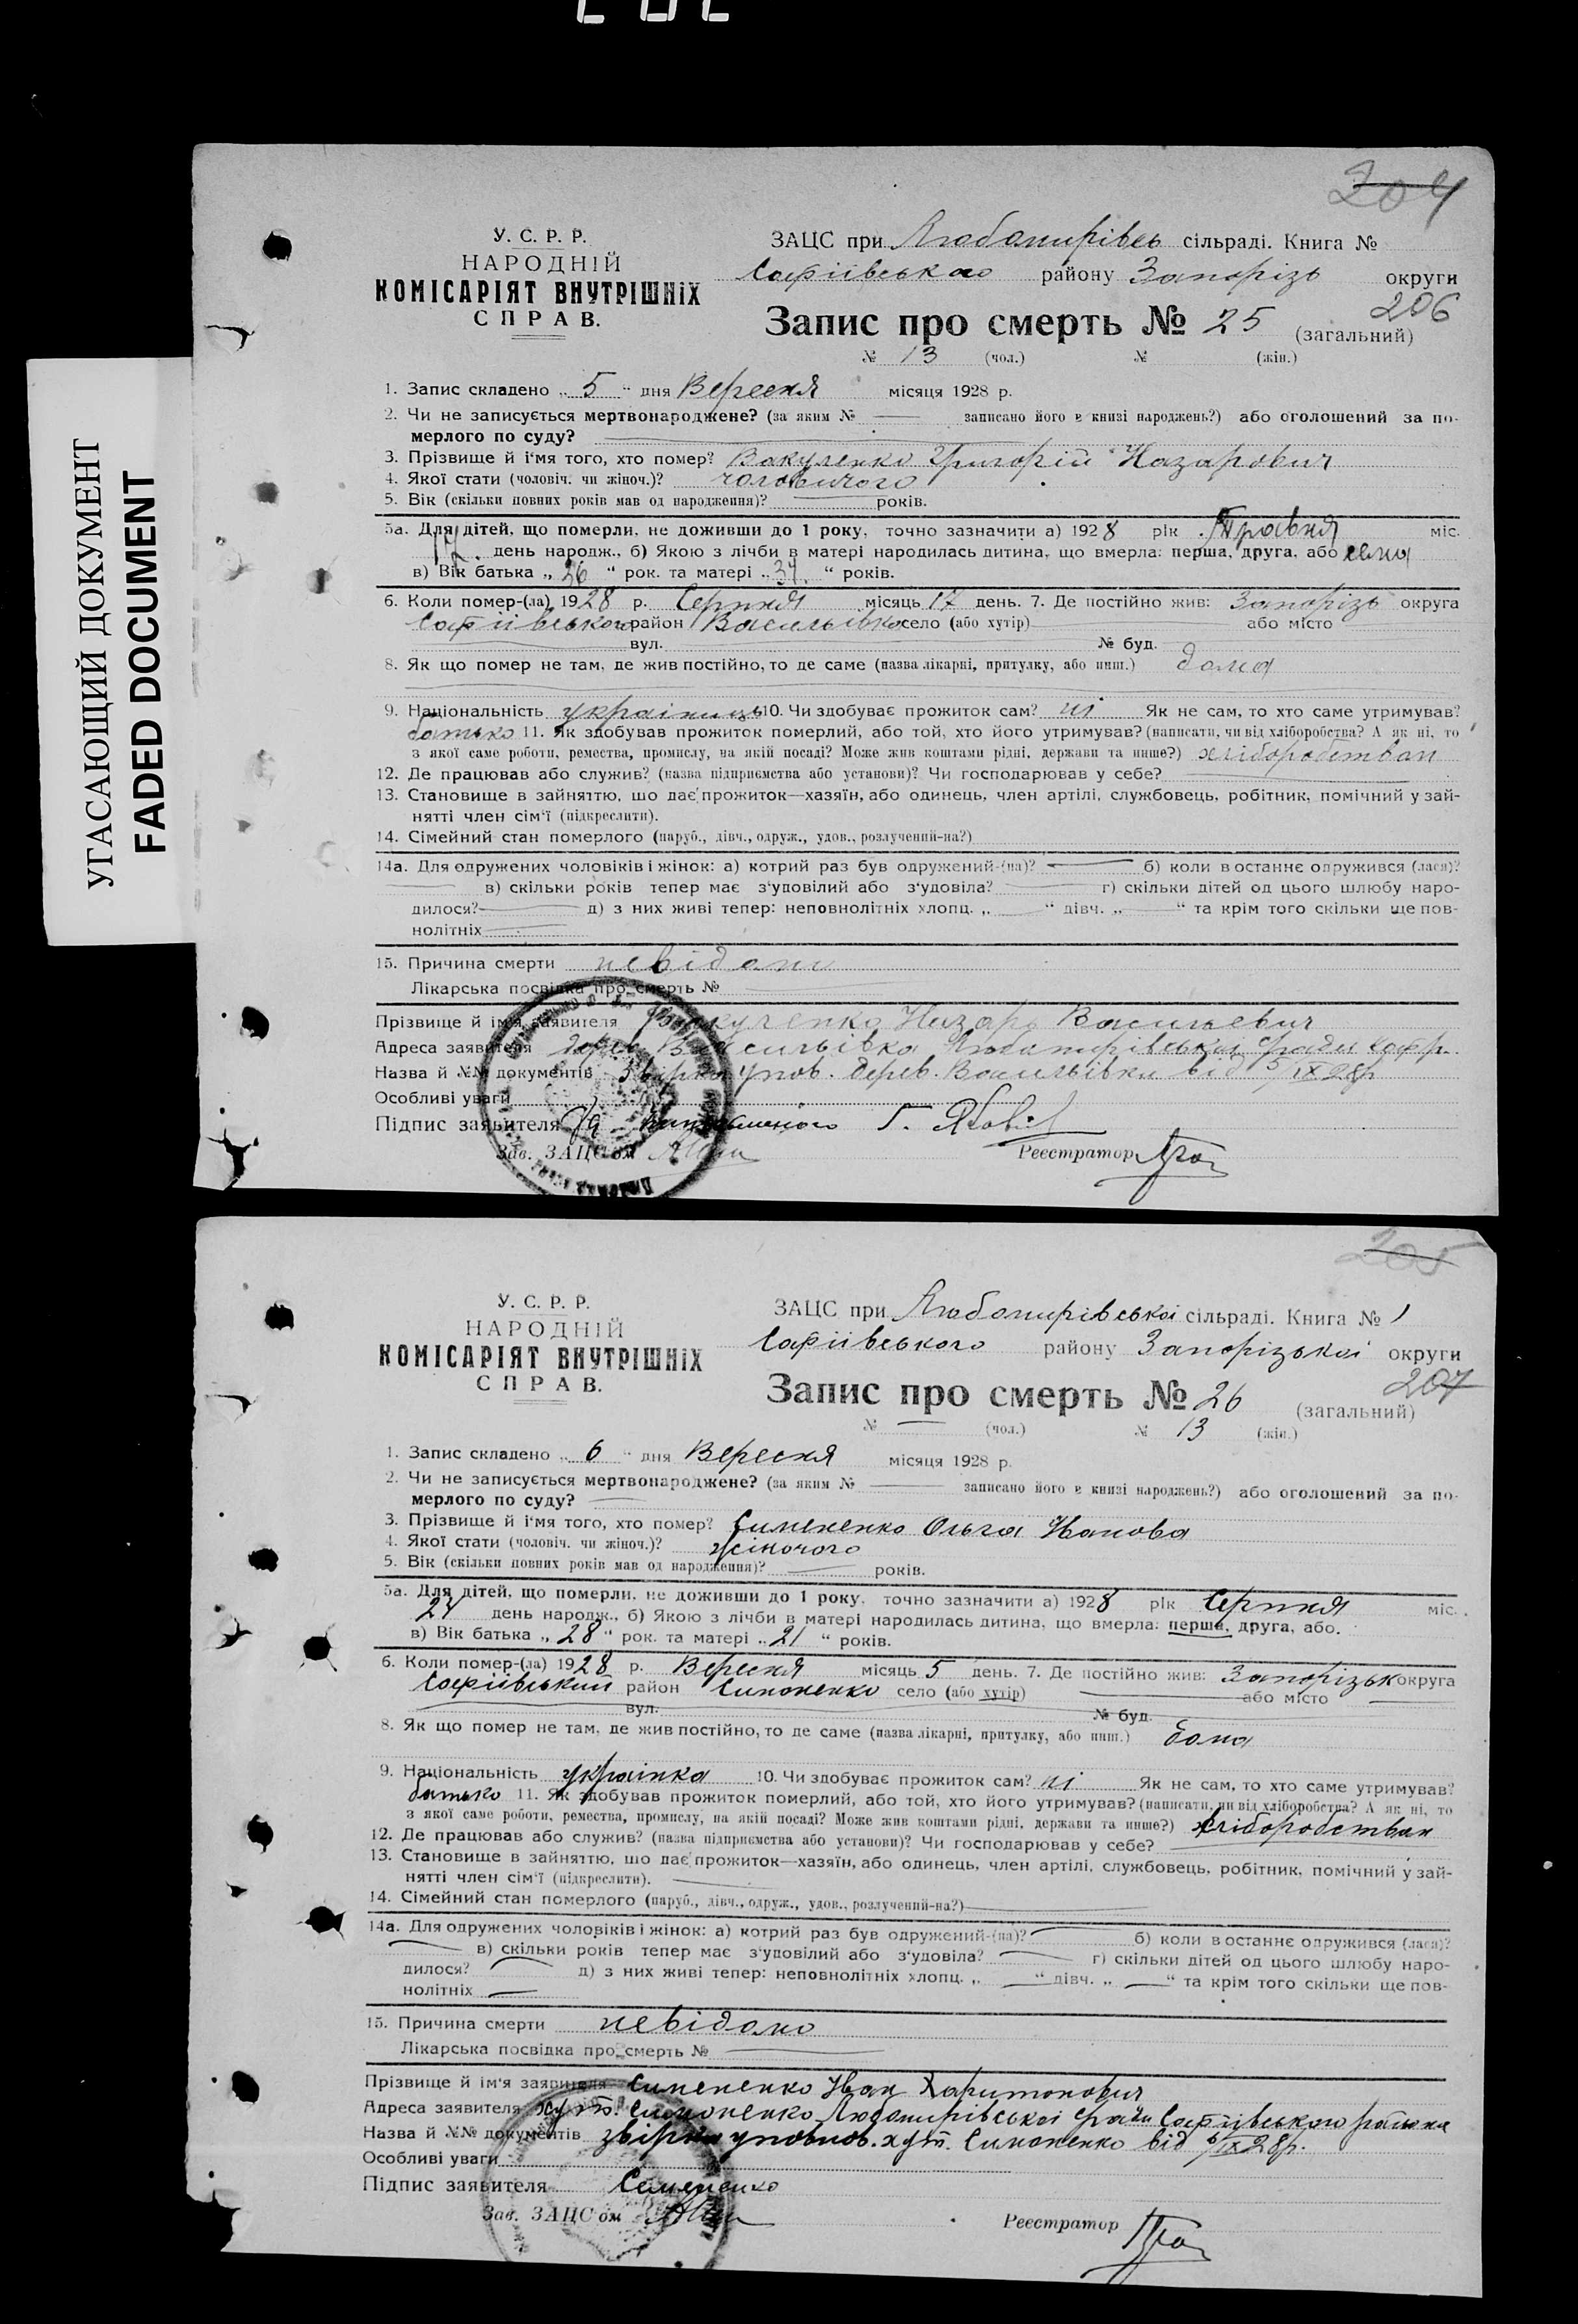 204
У. С. Р. Р.
НАРОДНІЙ
КОМІСАРІЯТ ВНУТРІШНІХ
СПРАВ.
ЗАЦС при Любомирівсь сільраді. Книга №
Софіївського району Запорізь округи
206
Запис про смерть № 25 (загальний)
№ 13 (чол.) № (жін.)
1. Запис складено „ 5 “ дня Вересня місяця 1928 р.
2. Чи не записується мертвонароджене? (за яким № — записано його в книзі народжень?) або оголошений за по-
мерлого по суду? —
3. Прізвище й і'мя того, хто помер? Вакуленко Григорій Назарович
4. Якої стати (чоловіч. чи жіноч.)? чоловичого
5. Вік (скільки повних років мав од народження)? — років.
5а. Для дітей, що померли, не доживши до 1 року, точно зазначити а) 1928 рік Травня міс.
17 день народж., б) Якою з лічби в матері народилась дитина, що вмерла: перша, друга, або сема
в) Вік батька „ 36 “ рок. та матері „ 37 “ років.
6. Коли помер-(ла) 1928 р. Серпня місяць 17 день. 7. Де постійно жив: Запорізь округа
Софіївського район Васильівка село (або хутір) — або місто
вул. № буд.
8. Як що помер не там, де жив постійно, то де саме (назва лікарні, притулку, або инш.) дома
9. Національність українець 10. Чи здобуває прожиток сам? ні Як не сам, то хто саме утримував?
батько 11. Як здобував прожиток померлий, або той, хто його утримував? (написати, чи від хліборобства? А як ні, то
з якої саме роботи, ремества, промислу, на якій посаді? Може жив коштами рідні, держави та инше?) хліборобством
12. Де працював або служив? (назва підприємства або установи)? Чи господарював у себе? —
13. Становище в зайняттю, шо дає прожиток—хазяїн, або одинець, член артілі, службовець, робітник, помічний у зай-
нятті член сім'ї (підкреслити).
14. Сімейний стан померлого (паруб., дівч., одруж., удов., розлучений-на?)
14а. Для одружених чоловіків і жінок: а) котрий раз був одружений-(на)? — б) коли в останнє одружився (лася)?
— в) скільки років тепер має з'удовілий або з'удовіла? — г) скільки дітей од цього шлюбу наро-
дилося? — д) з них живі тепер: неповнолітніх хлопц. „ — “ дівч. „ — “ та крім того скільки ще пов-
нолітніх —
15. Причина смерти невідомо
Лікарська посвідка про смерть № —
Прізвище й ім'я заявителя Вакуленко Назар Васильевич
Адреса заявителя дерев. Васильівка Любомирівськой сради Соф р.
Назва й №№ документів Звірка упов. дерев. Васильівки від 5/IX 28р
Особливі уваги
Підпис заявителя За неписьменного Г. Яковл
Зав. ЗАЦС'ом Реєстратор
205
У. С. Р. Р.
НАРОДНІЙ
КОМІСАРІЯТ ВНУТРІШНІХ
СПРАВ.
ЗАЦС при Любомирівської сільраді. Книга № 1
Софіівського району Запорізької округи
207
Запис про смерть № 26 (загальний)
№ — (чол.) № 13 (жін.)
1. Запис складено „ 6 “ дня Вересня місяця 1928 р.
2. Чи не записується мертвонароджене? (за яким № — записано його в книзі народжень?) або оголошений за по-
мерлого по суду? —
3. Прізвище й і'мя того, хто помер? Симененко Ольга Иванова
4. Якої стати (чоловіч. чи жіноч.)? жіночого
5. Вік (скільки повних років мав од народження)? — років.
5а. Для дітей, що померли, не доживши до 1 року, точно зазначити а) 1928 рік Серпня міс.
24 день народж., б) Якою з лічби в матері народилась дитина, що вмерла: перша, друга, або.
в) Вік батька „ 28 “ рок. та матері „ 21 “ років.
6. Коли помер-(ла) 1928 р. Вересня місяць 5 день. 7. Де постійно жив: Запорізьк округа
Софіівський район Симоненко село (або хутір) — або місто —
вул. — № буд. —
8. Як що помер не там, де жив постійно, то де саме (назва лікарні, притулку, або инш.) дома
9. Національність українка 10. Чи здобуває прожиток сам? ні Як не сам, то хто саме утримував?
батько 11. Як здобував прожиток померлий, або той, хто його утримував? (написати, чи від хліборобства? А як ні, то
з якої саме роботи, ремества, промислу, на якій посаді? Може жив коштами рідні, держави та инше?) хліборобством
12. Де працював або служив? (назва підприємства або установи)? Чи господарював у себе? —
13. Становище в зайняттю, шо дає прожиток—хазяїн, або одинець, член артілі, службовець, робітник, помічний у зай-
нятті член сім'ї (підкреслити). —
14. Сімейний стан померлого (паруб., дівч., одруж., удов., розлучений-на?) —
14а. Для одружених чоловіків і жінок: а) котрий раз був одружений-(на)? — б) коли в останнє одружився (лася)?
— в) скільки років тепер має з'удовілий або з'удовіла? — г) скільки дітей од цього шлюбу наро-
дилося? — д) з них живі тепер: неповнолітніх хлопц. „ — “ дівч. „ — “ та крім того скільки ще пов-
нолітніх —
15. Причина смерти невідомо
Лікарська посвідка про смерть № —
Прізвище й ім'я заявителя Симененко Иван Харитонович
Адреса заявителя хут. Симоненко Любомирівської сради Софіівського района
Назва й №№ документів звірка уповнов. хут. Симоненко від 6/IX 28р.
Особливі уваги
Підпис заявителя Семененко
Зав. ЗАЦС'ом Реєстратор
УГАСАЮЩИЙ ДОКУМЕНТ
FADED DOCUMENT